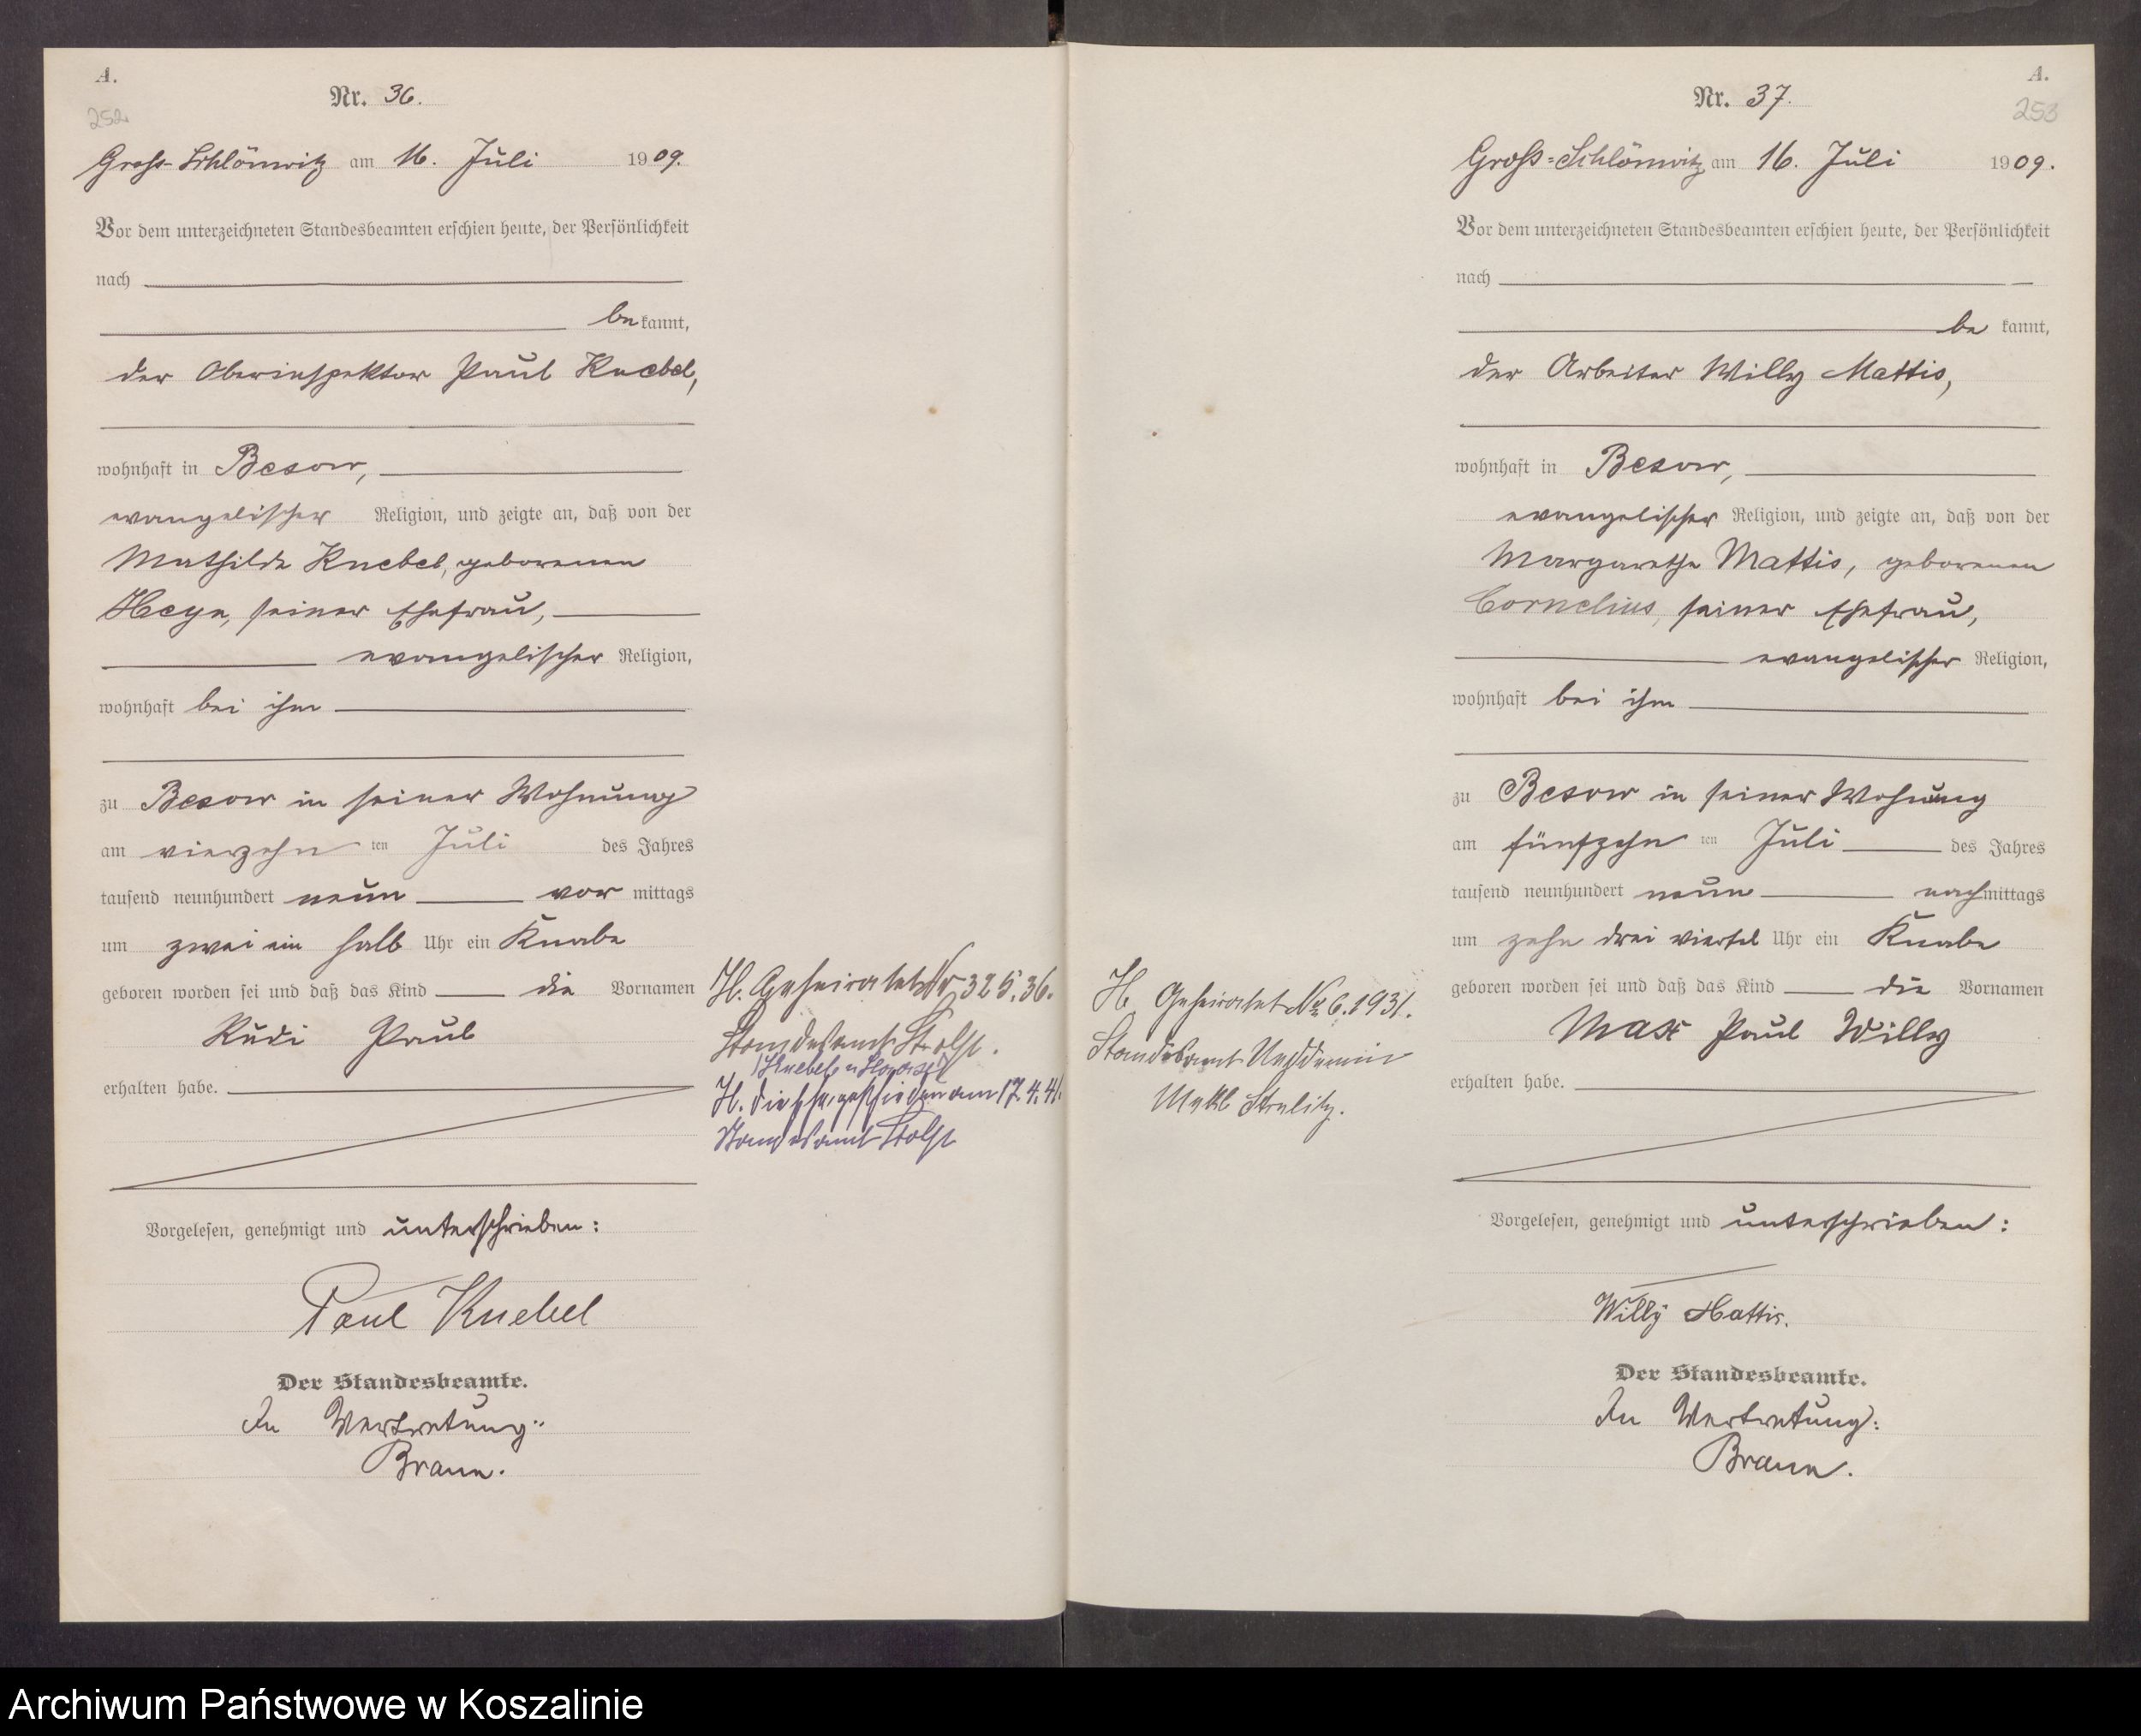 A.
252
Nr. 36.
Gross-Schlönwitz am 16. Juli 1909.
Vor dem unterzeichneten Standesbeamten erschien heute, der Persönlichkeit
nach
be kannt,
der Oberinspektor Paul Knebel,
wohnhaft in Besow,
evangelischer Religion, und zeigte an, daß von der
Mathilde Knebel, geborenen
Heyn, seiner Ehefrau,
evangelischer Religion,
wohnhaft bei ihm
zu Besow in seiner Wohnung
am vierzehn ten Juli des Jahres
tausend neunhundert neun vor mittags
um zwei ein halb Uhr ein Knabe
geboren worden sei und daß das Kind die Vornamen
Rudi Paul
erhalten habe.
Vorgelesen, genehmigt und unterschrieben:
Paul Knebel
Der Standesbeamte.
In Vertretung:
Braun.
H. Geheiratet Nr 325.36.
Standesamt Stolp.
H. die Ehe geschieden am 17.4.41.
Standesamt Stolp
A.
253
Nr. 37.
Groß-Schlönwitz am 16. Juli 1909.
Vor dem unterzeichneten Standesbeamten erschien heute, der Persönlichkeit
nach
be kannt,
der Arbeiter Willy Mattis,
wohnhaft in Besow,
evangelischer Religion, und zeigte an, daß von der
Margarethe Mattis, geborenen
Cornelius, seiner Ehefrau,
evangelischer Religion,
wohnhaft bei ihm
zu Besow in seiner Wohnung
am fünfzehn ten Juli des Jahres
tausend neunhundert neun nachmittags
um zehn drei viertel Uhr ein Knabe
geboren worden sei und daß das Kind die Vornamen
Max Paul Willy
erhalten habe.
Vorgelesen, genehmigt und unterschrieben:
Willy Mattis.
Der Standesbeamte.
In Vertretung:
Braun.
H. Geheiratet No 6.1931.
Standesamt
Mekl Strelitz.
Archiwum Państwowe w Koszalinie